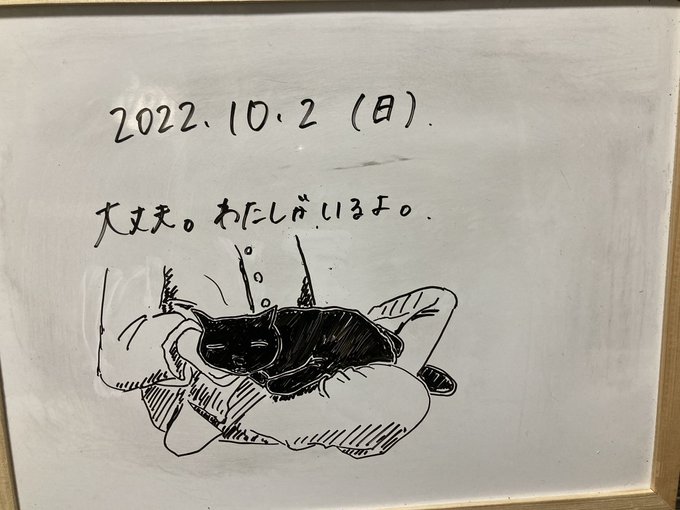 2022.10.2(日).
大丈夫。わたしがいるよ。